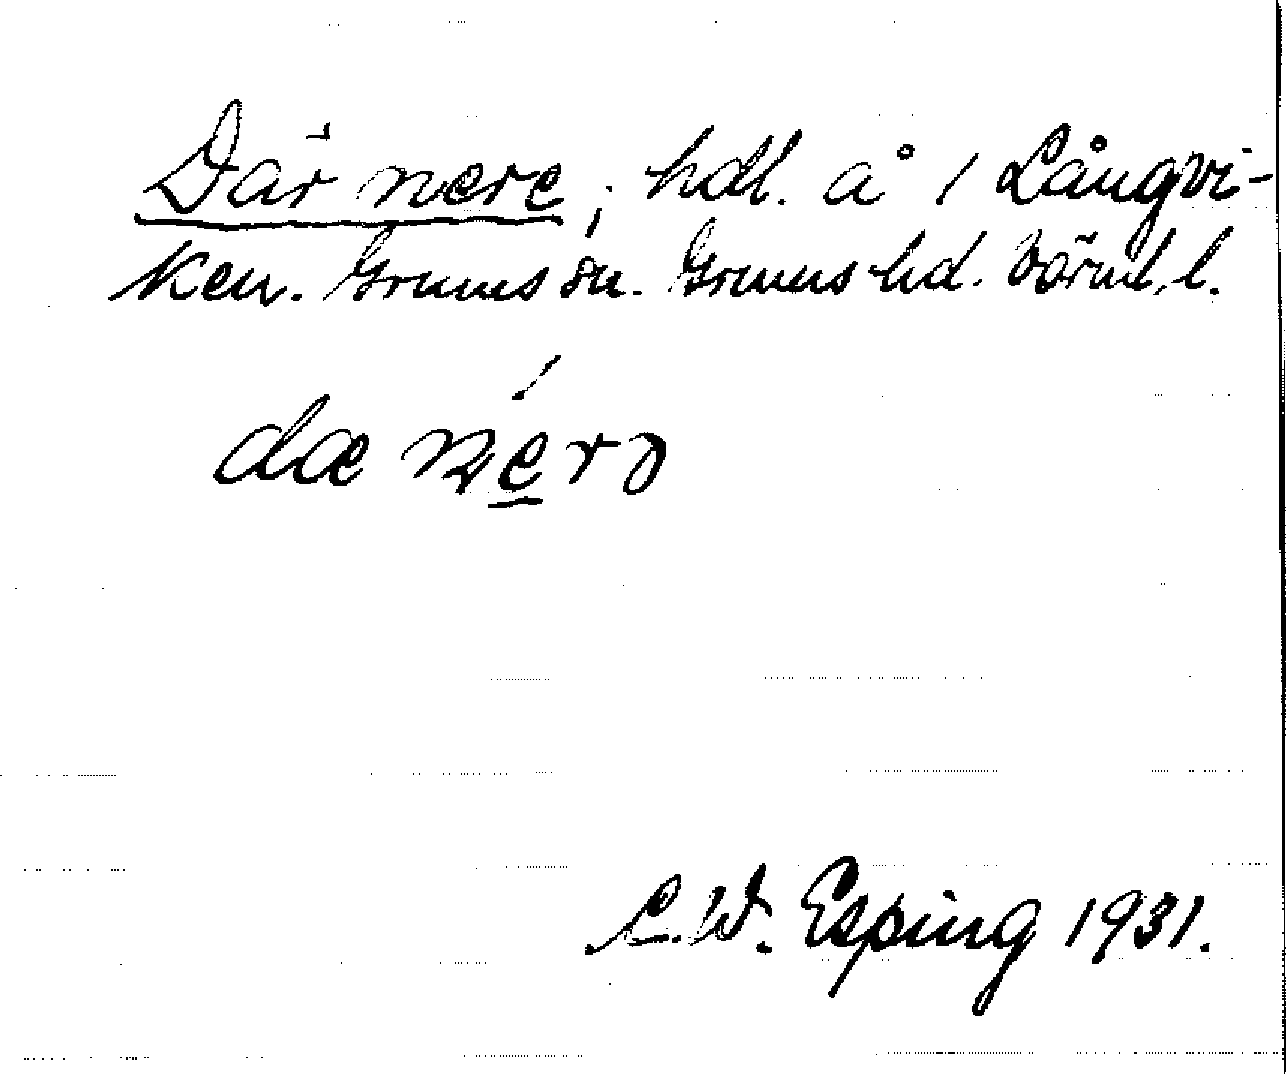 Där nere, hdl. å 1 Långvi-
ken. Grums sn. Grums hd. Värml. l.
dæ nérə
C.W. Esping 1931.